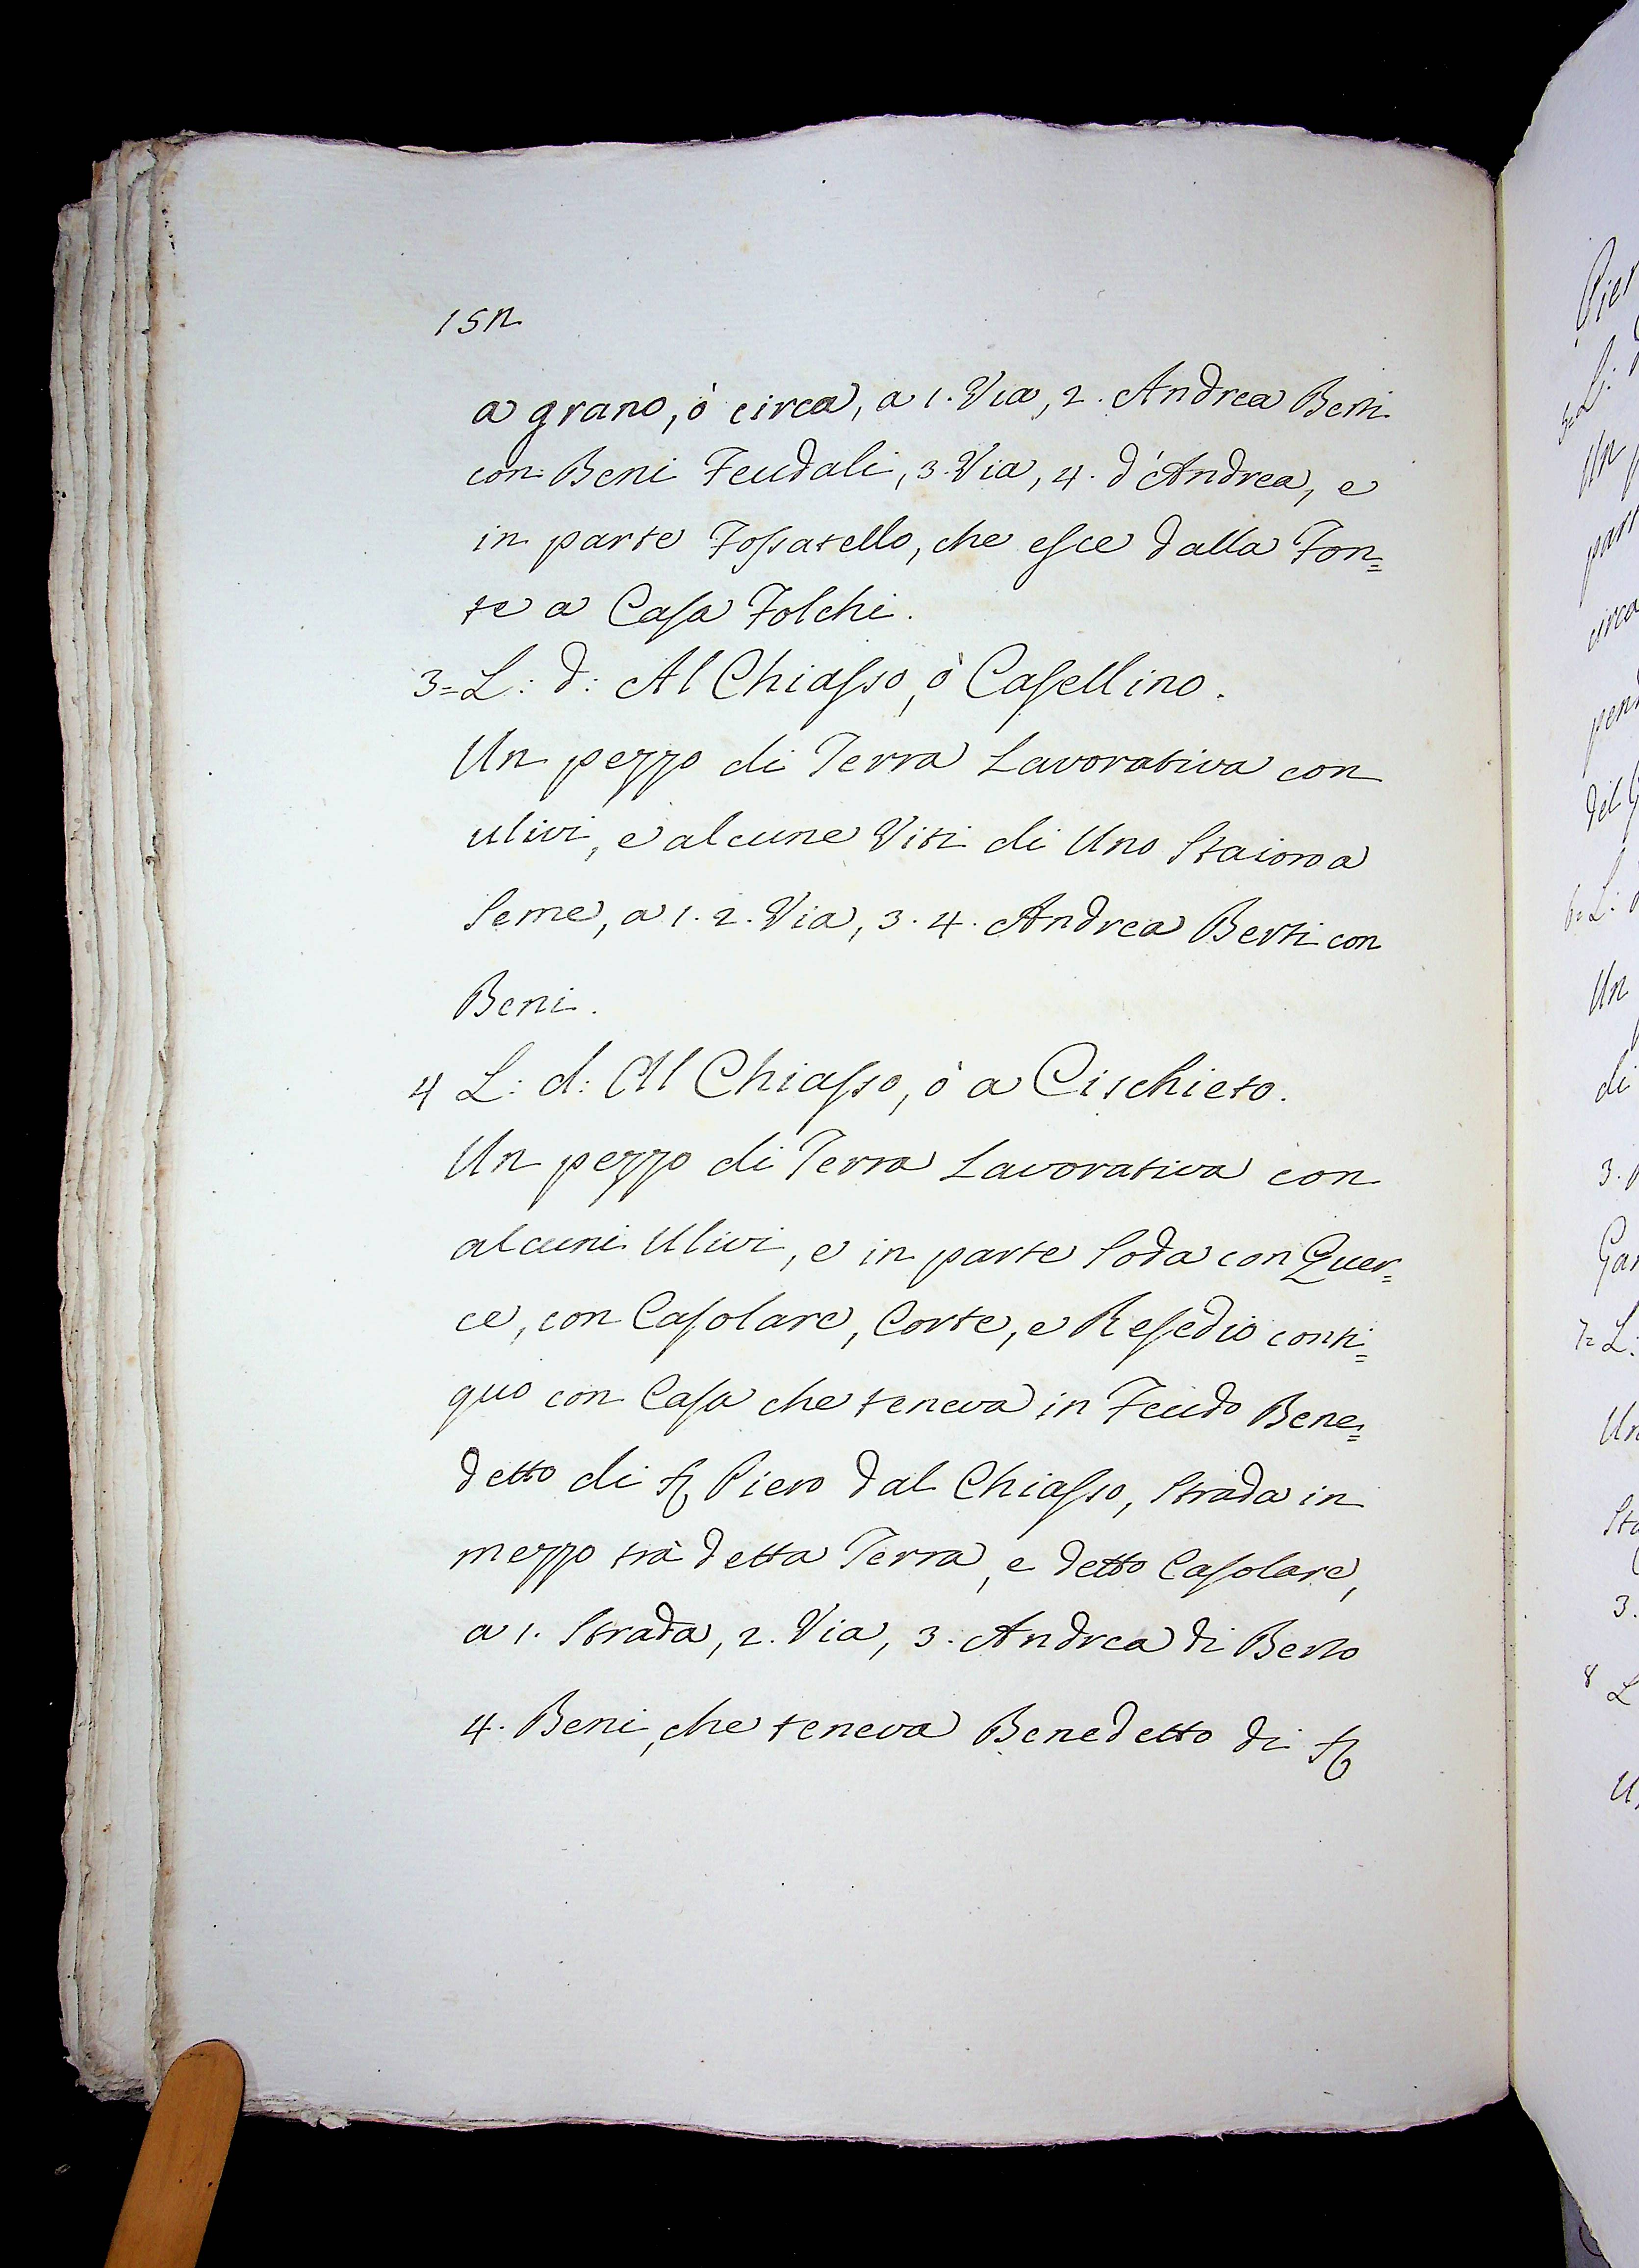 152
a grano, ò circa, a 1. Via, 2. Andrea Berti
con Beni Feudali, 3. Via, 4. d'Andrea, e
in parte Foſsatello, che eſce dalla Fon=
te a Caſa Folchi.
3= L: d: Al Chiaſso, ò Caſellino.
Un pezzo di Terra Lavorativa con
ulivi, e alcune Viti di Uno Staioro a
Seme, a 1. 2. Via, 3. 4. Andrea Berti con
Beni.
4 L: d: Al Chiaſso, ò a Cischieto.
Un pezzo di Terra Lavorativa con
alcuni Ulivi, e in parte Soda con Quer=
ce, con Caſolare, Corte, e Reſedio conti=
guo con Caſa che teneva in Feudo Bene=
detto di Piero dal Chiaſso, Strada in
mezzo trà detta Terra, e detto Caſolare,
a 1. Strada, 2. Via, 3. Andrea di Berto
4. Beni, che teneva Benedetto di
Un
di
3.
7= L:
3.
8 L